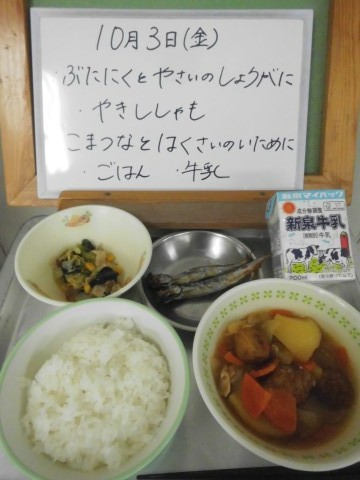 10月3日(金)
・ぶたにくとやさいのしょうがに
・やきししゃも
こまつなとはくさいのいために
・ごはん ・牛乳
成分無調整
新泉牛乳
200ml